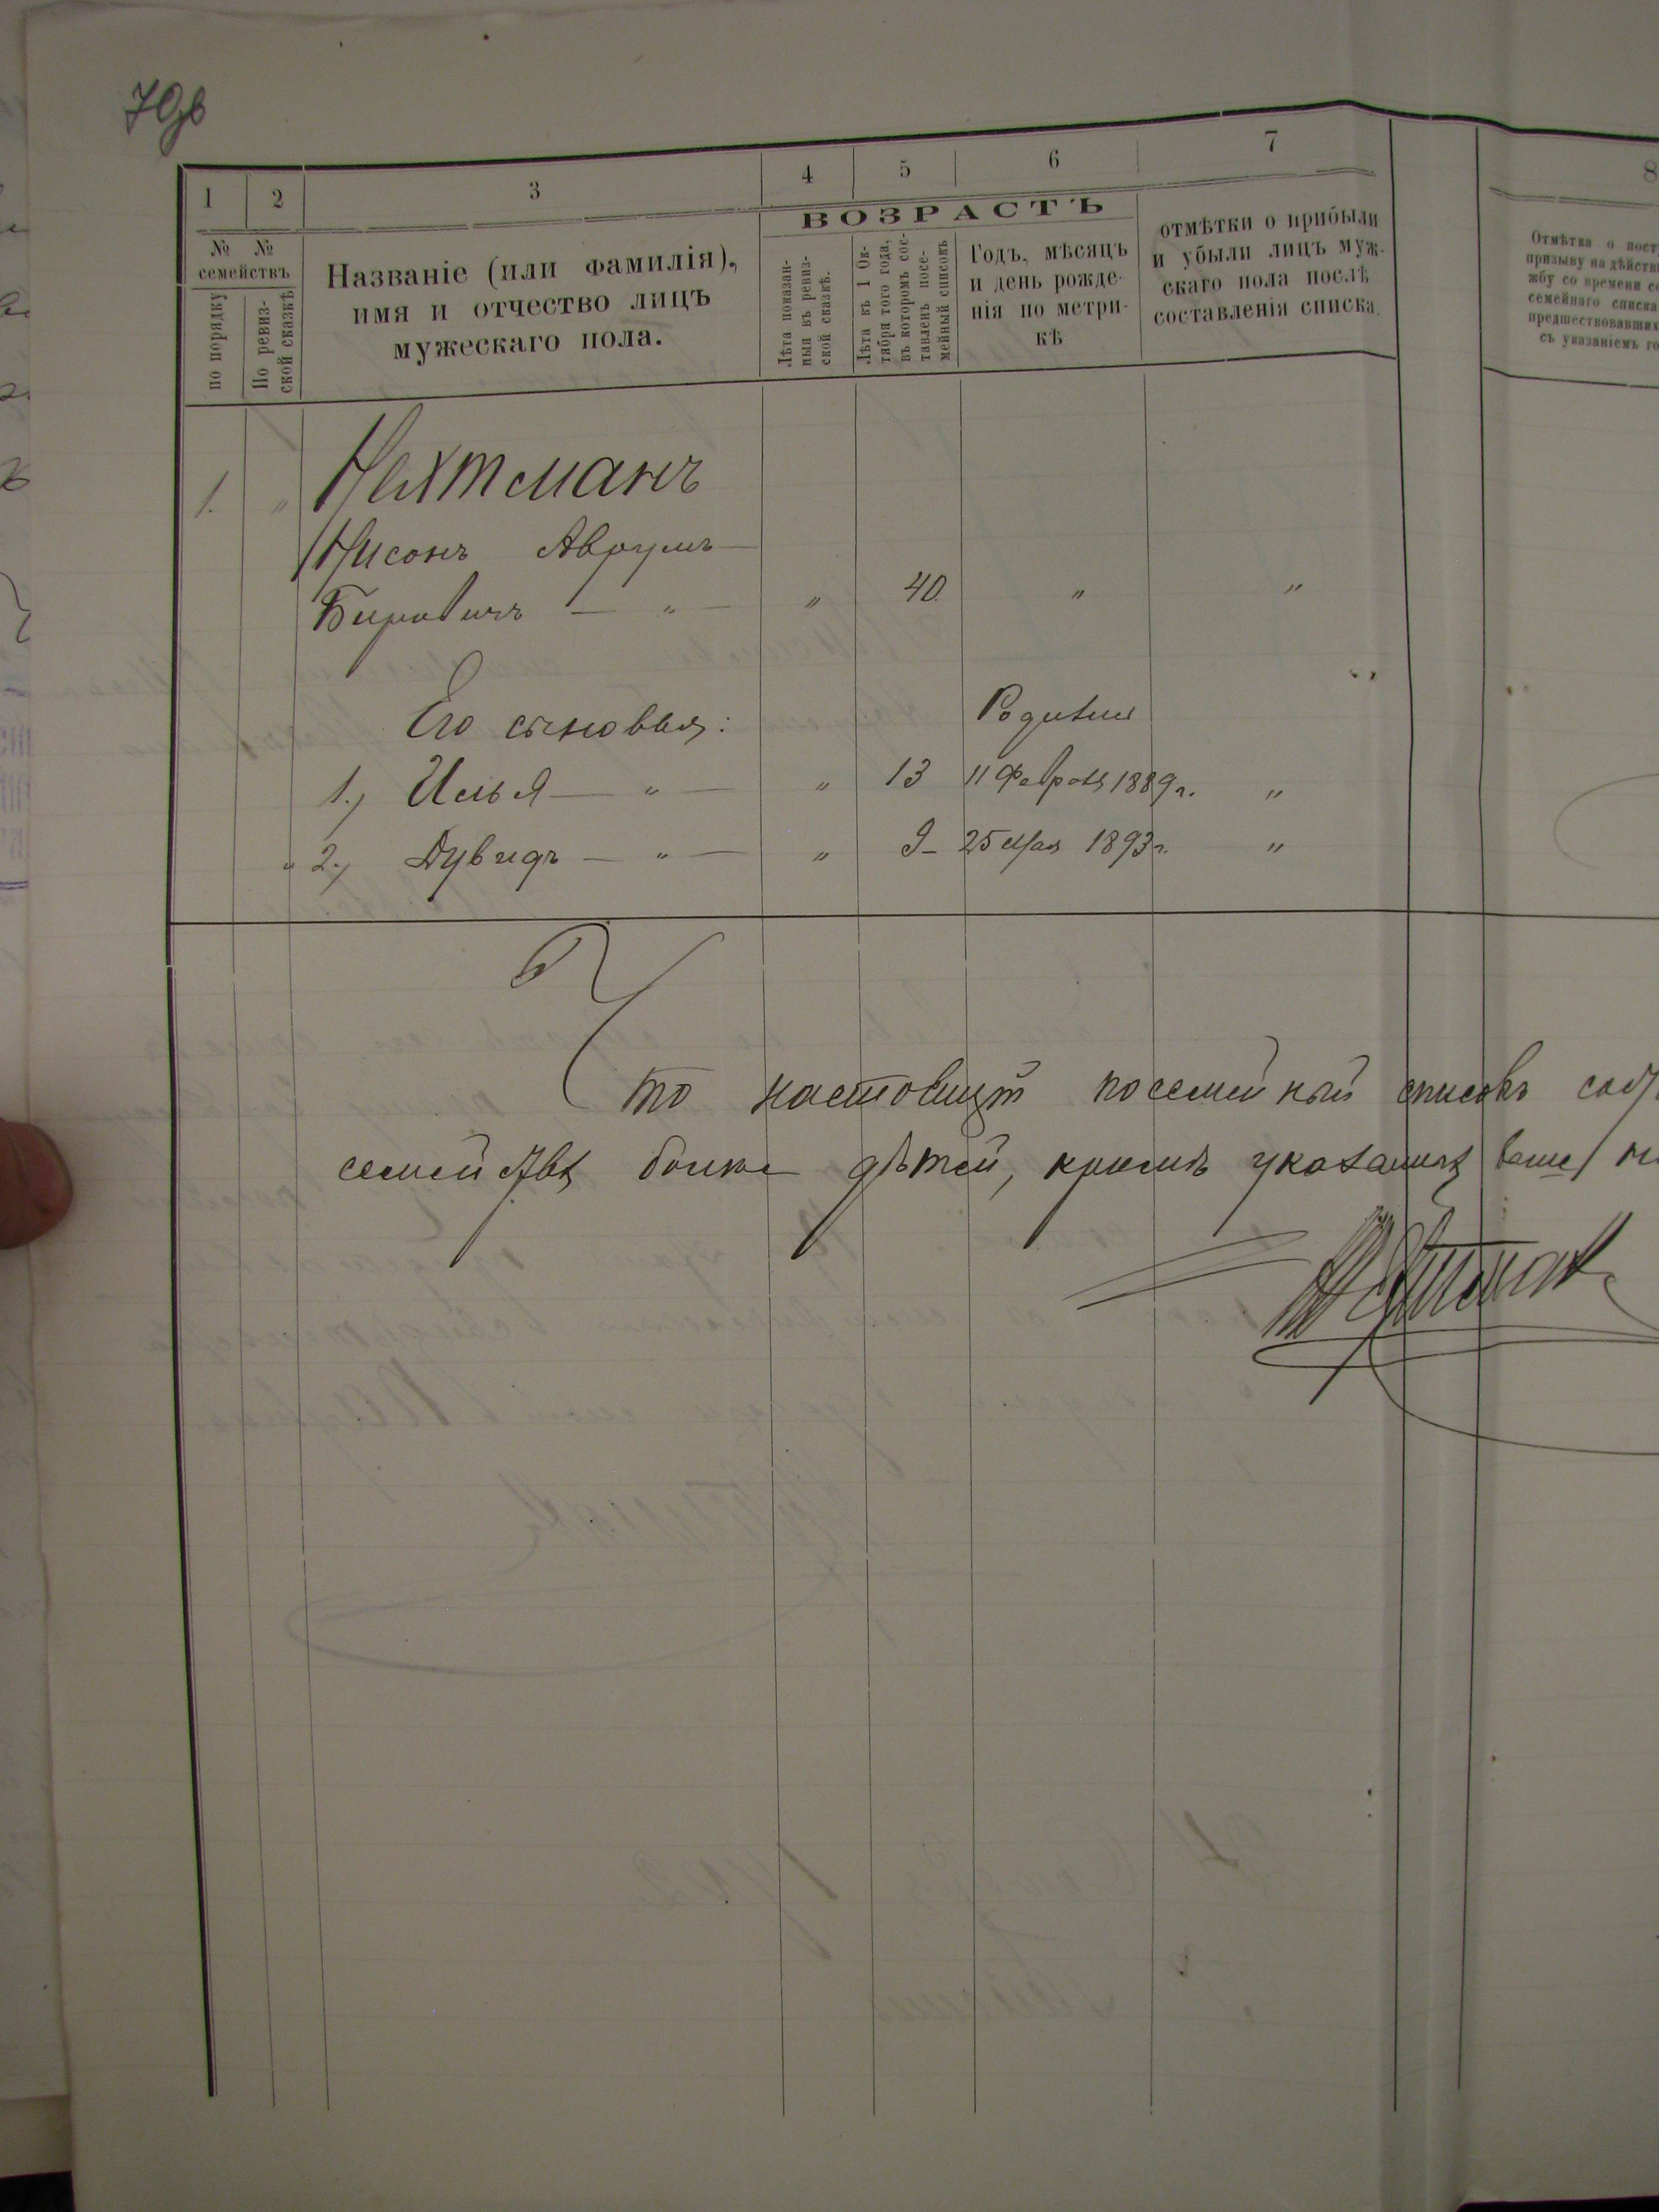 79об
1 2 3 4 5 6 7 8
№ № семействъ
по порядку
По ревиз-
ской сказкѣ
Названіе (или фамилія),
имя и отчество лицъ
мужескаго пола.
ВОЗРАСТЪ
Лѣта показан-
ныя въ ревиз-
ской сказкѣ.
Лѣта къ 1 Ок-
тября того года,
въ которомъ сос-
тавленъ посе-
мейный списокъ
Годъ, мѣсяцъ
и день рожде-
нія по метри-
кѣ
отмѣтки о прибыли
и убыли лицъ муж-
скаго пола послѣ
составленія списка.
Отмѣтка о пост
призыву на дѣйств
жбу со времени со
семейнаго списка
предшествовавших
съ указаніемъ го
1. " Нехтманъ
Нисонъ Аврумъ—
Беровичъ — " — " 40. " "
Его сыновья: Родился
1.) Илья — " — " 13 11 Февраля 1889 г. "
" 2.) Дувидъ — " — " 9 — 25 Мая 1893 г. "
Что настоящій посемейный списокъ
семейства болѣе дѣтей, кромѣ указанныхъ выше